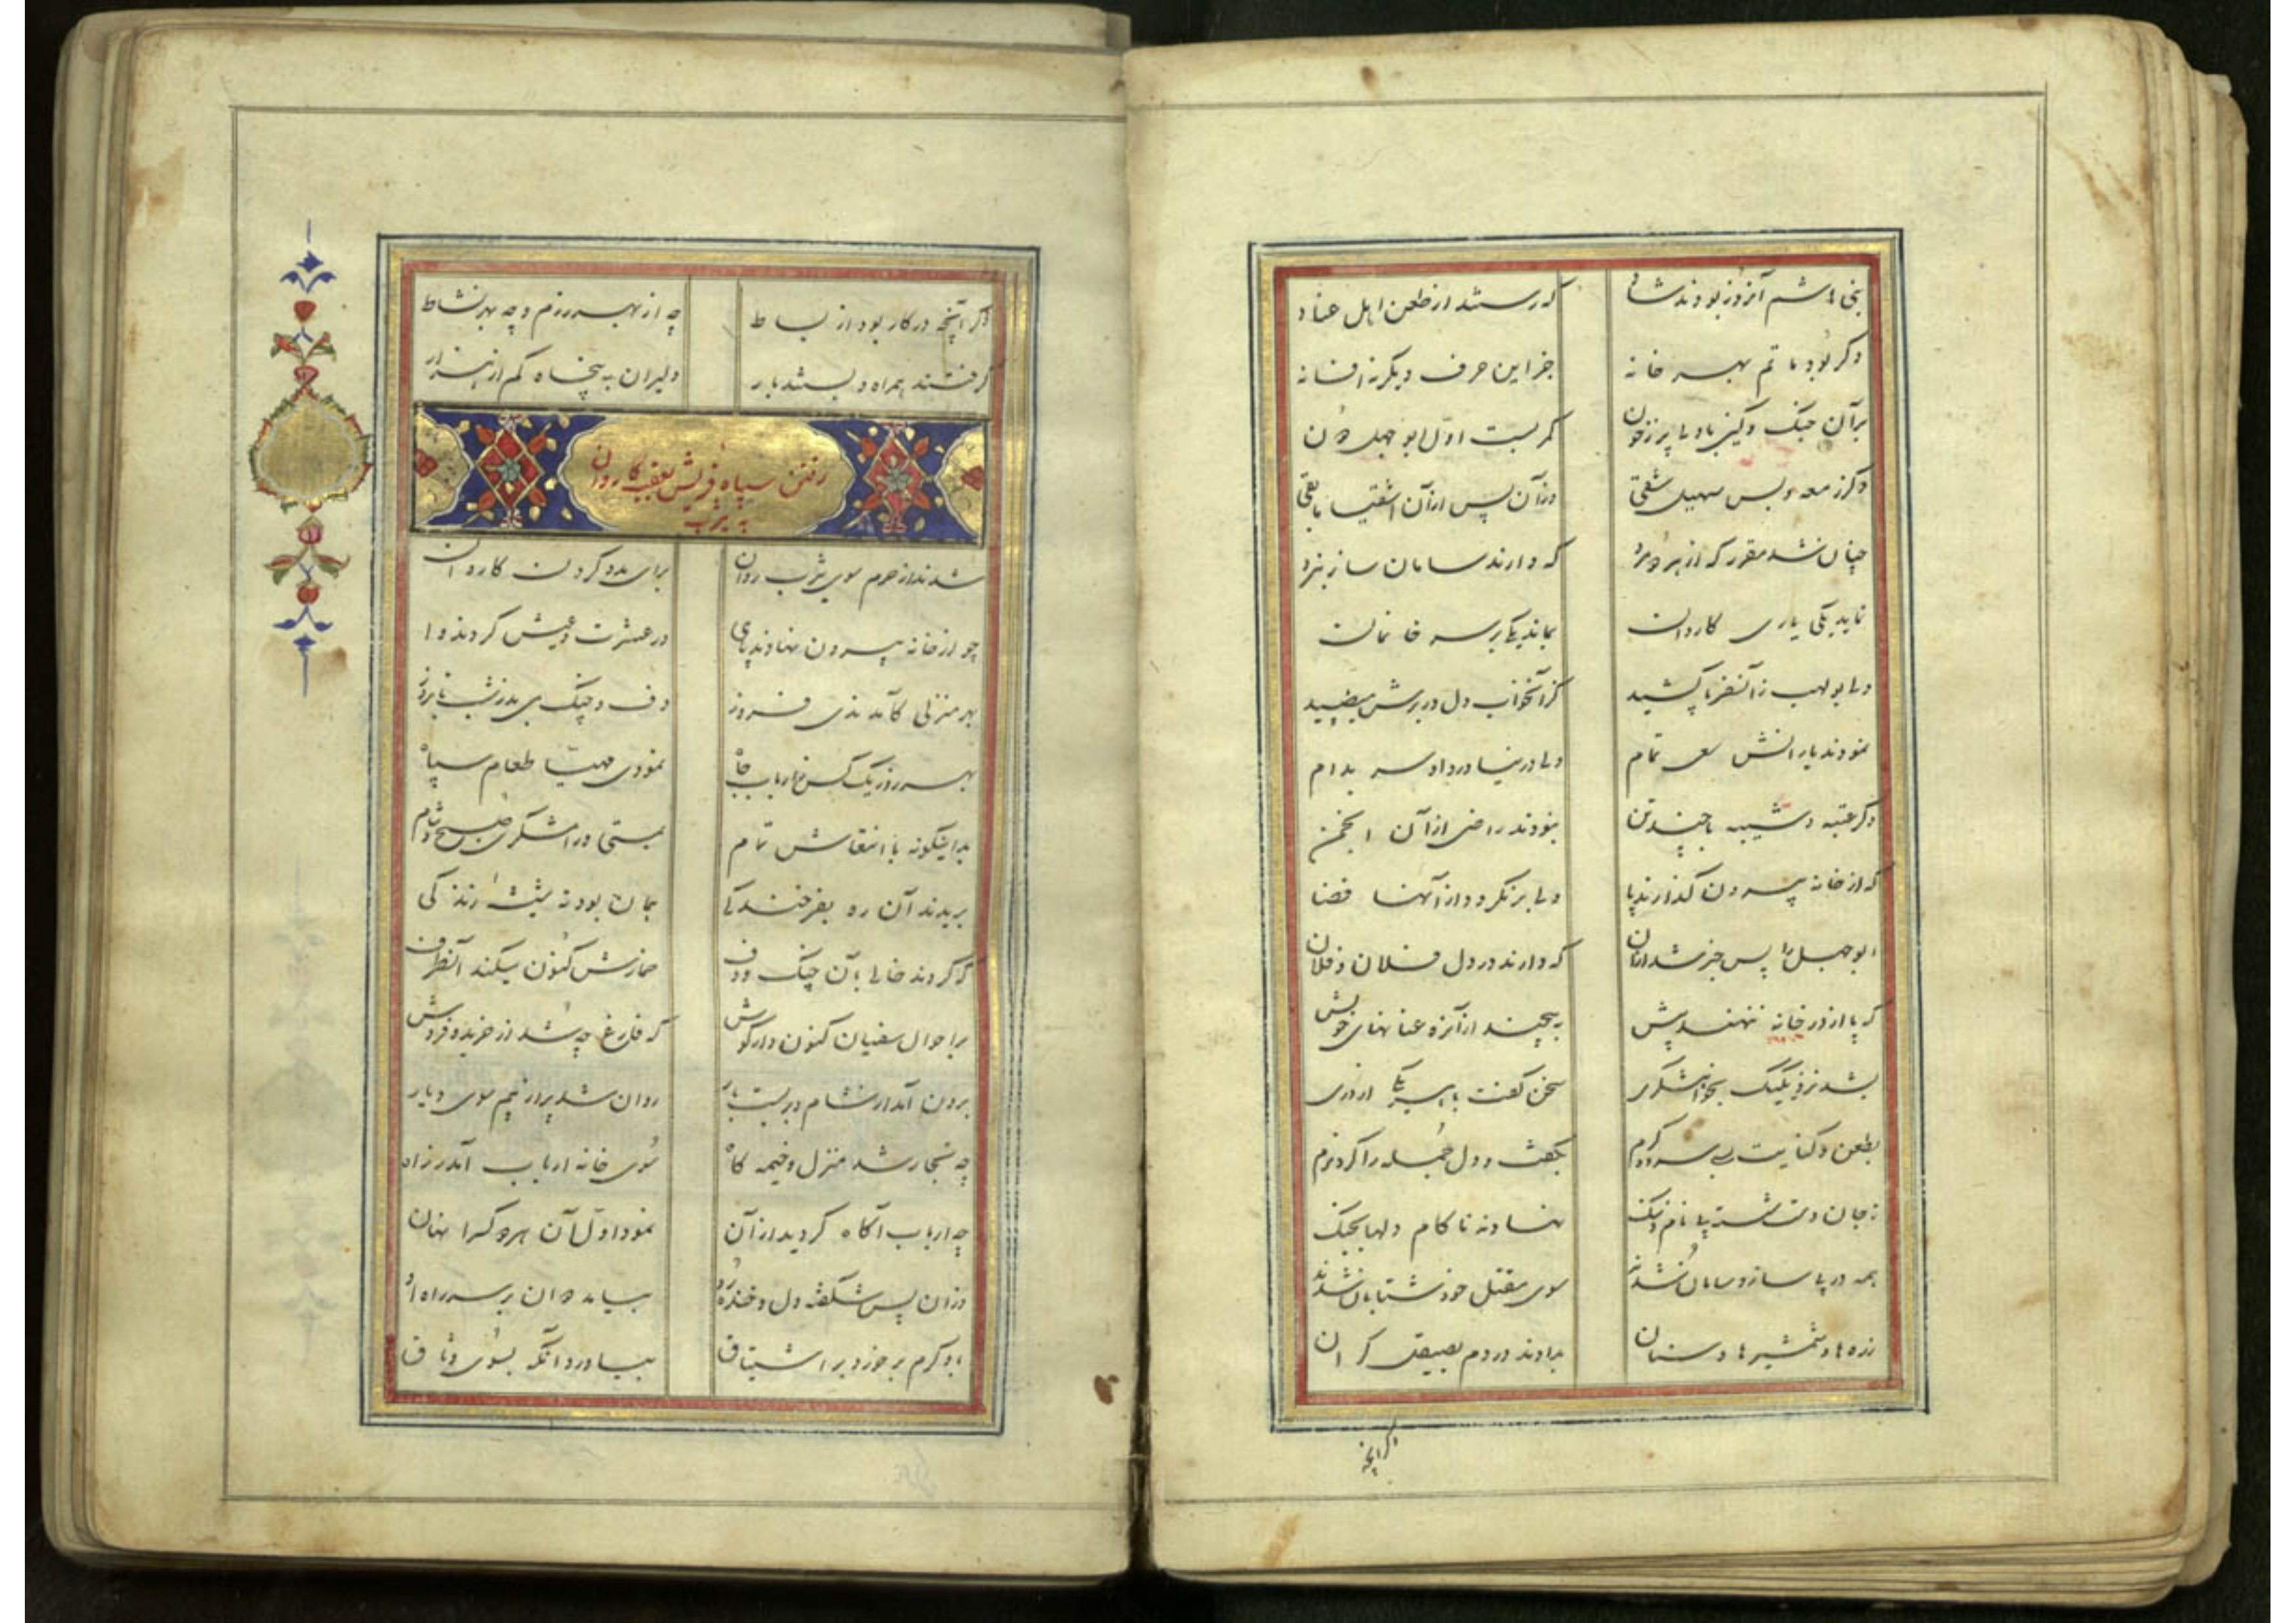 بنی هاشم آنروز بودند شاد که رستند از طعن اهل عناد
دگر بود ماتم بهر خانه جز این حرف دیگر نه افسانه
بر آن جنک و کین با دل پر ز خون کمر بست اول ابو جهل دون
دگر زمعه و پس سهیل شقی وزآن پس ازآن اشقیا مابقی
چنان شد مقرر که از هر دو مرد که دارند سامان ساز نبرد
نماید یکی یاری کاروان بماند یکی بر سر خانمان
ولی بو لهب زآنسفر پا کشید کزآنخواب دل در برش میطپید
نمودند یارانش سعی تمام ولی در نیاورد او سر بدام
دگر عتبه و شیبه با چند تن نبودند راضی ازآن انجمن
که از خانه بیرون گذارند پا ولی برنگردد ازآنها قضا
ابوجهل را پس خبر شد ازآن که دارند در دل فلان و فلان
که پا از در خانه ننهند پیش به پیچند ازآنره عنانهای خویش
بشد نزد یکیک بخواهشگری سخن گفت با هر یکی از دری
بطعن و کنایت بسرد و گرم بگفت و دل جمله را کرد نرم
ز جان دست شستند با نام و ننک نهادند ناکام دلها بجنک
همه در پی ساز و سامان شدند سوی مقتل خود شتابان شدند
زره ها و شمشیرها و سنان بدادند در دم بصیقل کران
دگر آنچه
دگر آنچه درکار بود از بساط چه از بهر رزم و چه بهر نشاط
گرفتند همراه و بستند بار دلیران به پنجاه کم از هزار
رفتن سپاه قریش بعقب کاروان
به یثرب
شدند از حرم سوی یثرب روان برای مدد کردن کاروان
چو از خانه بیرون نهادند پای در عشرت و عیش کردند وا
بهر منزلی کآمدندی فروز دف و چنک می بد ز شب تا بروز
بهر روز یک کس ز ارباب جاه نمودی مهیا طعام سپاه
بداینگونه با انتعاش تمام بمستی و رامشگری صبح و شام
بریدند آن ره بفرخندگی همان بود ته شیشه زندگی
که کردند خالی بآن چنک و دف خمارش کنون میکند آنطرف
بر احوال سفیان کنون دار گوش که فارغ چه شد از خرید و فروش
برون آمد از شام و بر بست بار روان شد پر از بیم سوی دیار
چه شد منزل و خیمه کاه سوی خانه ارباب آمد ز راه
چه ارباب آگاه گردید ازآن نمود اول آن هر دو کس را نهان
وزان پس شگفته دل و خنده رو بیامد دوان بر سر راه او
باو کرم بر خورد بر اشتیاق بیاورد آنگه بسوی وثاق